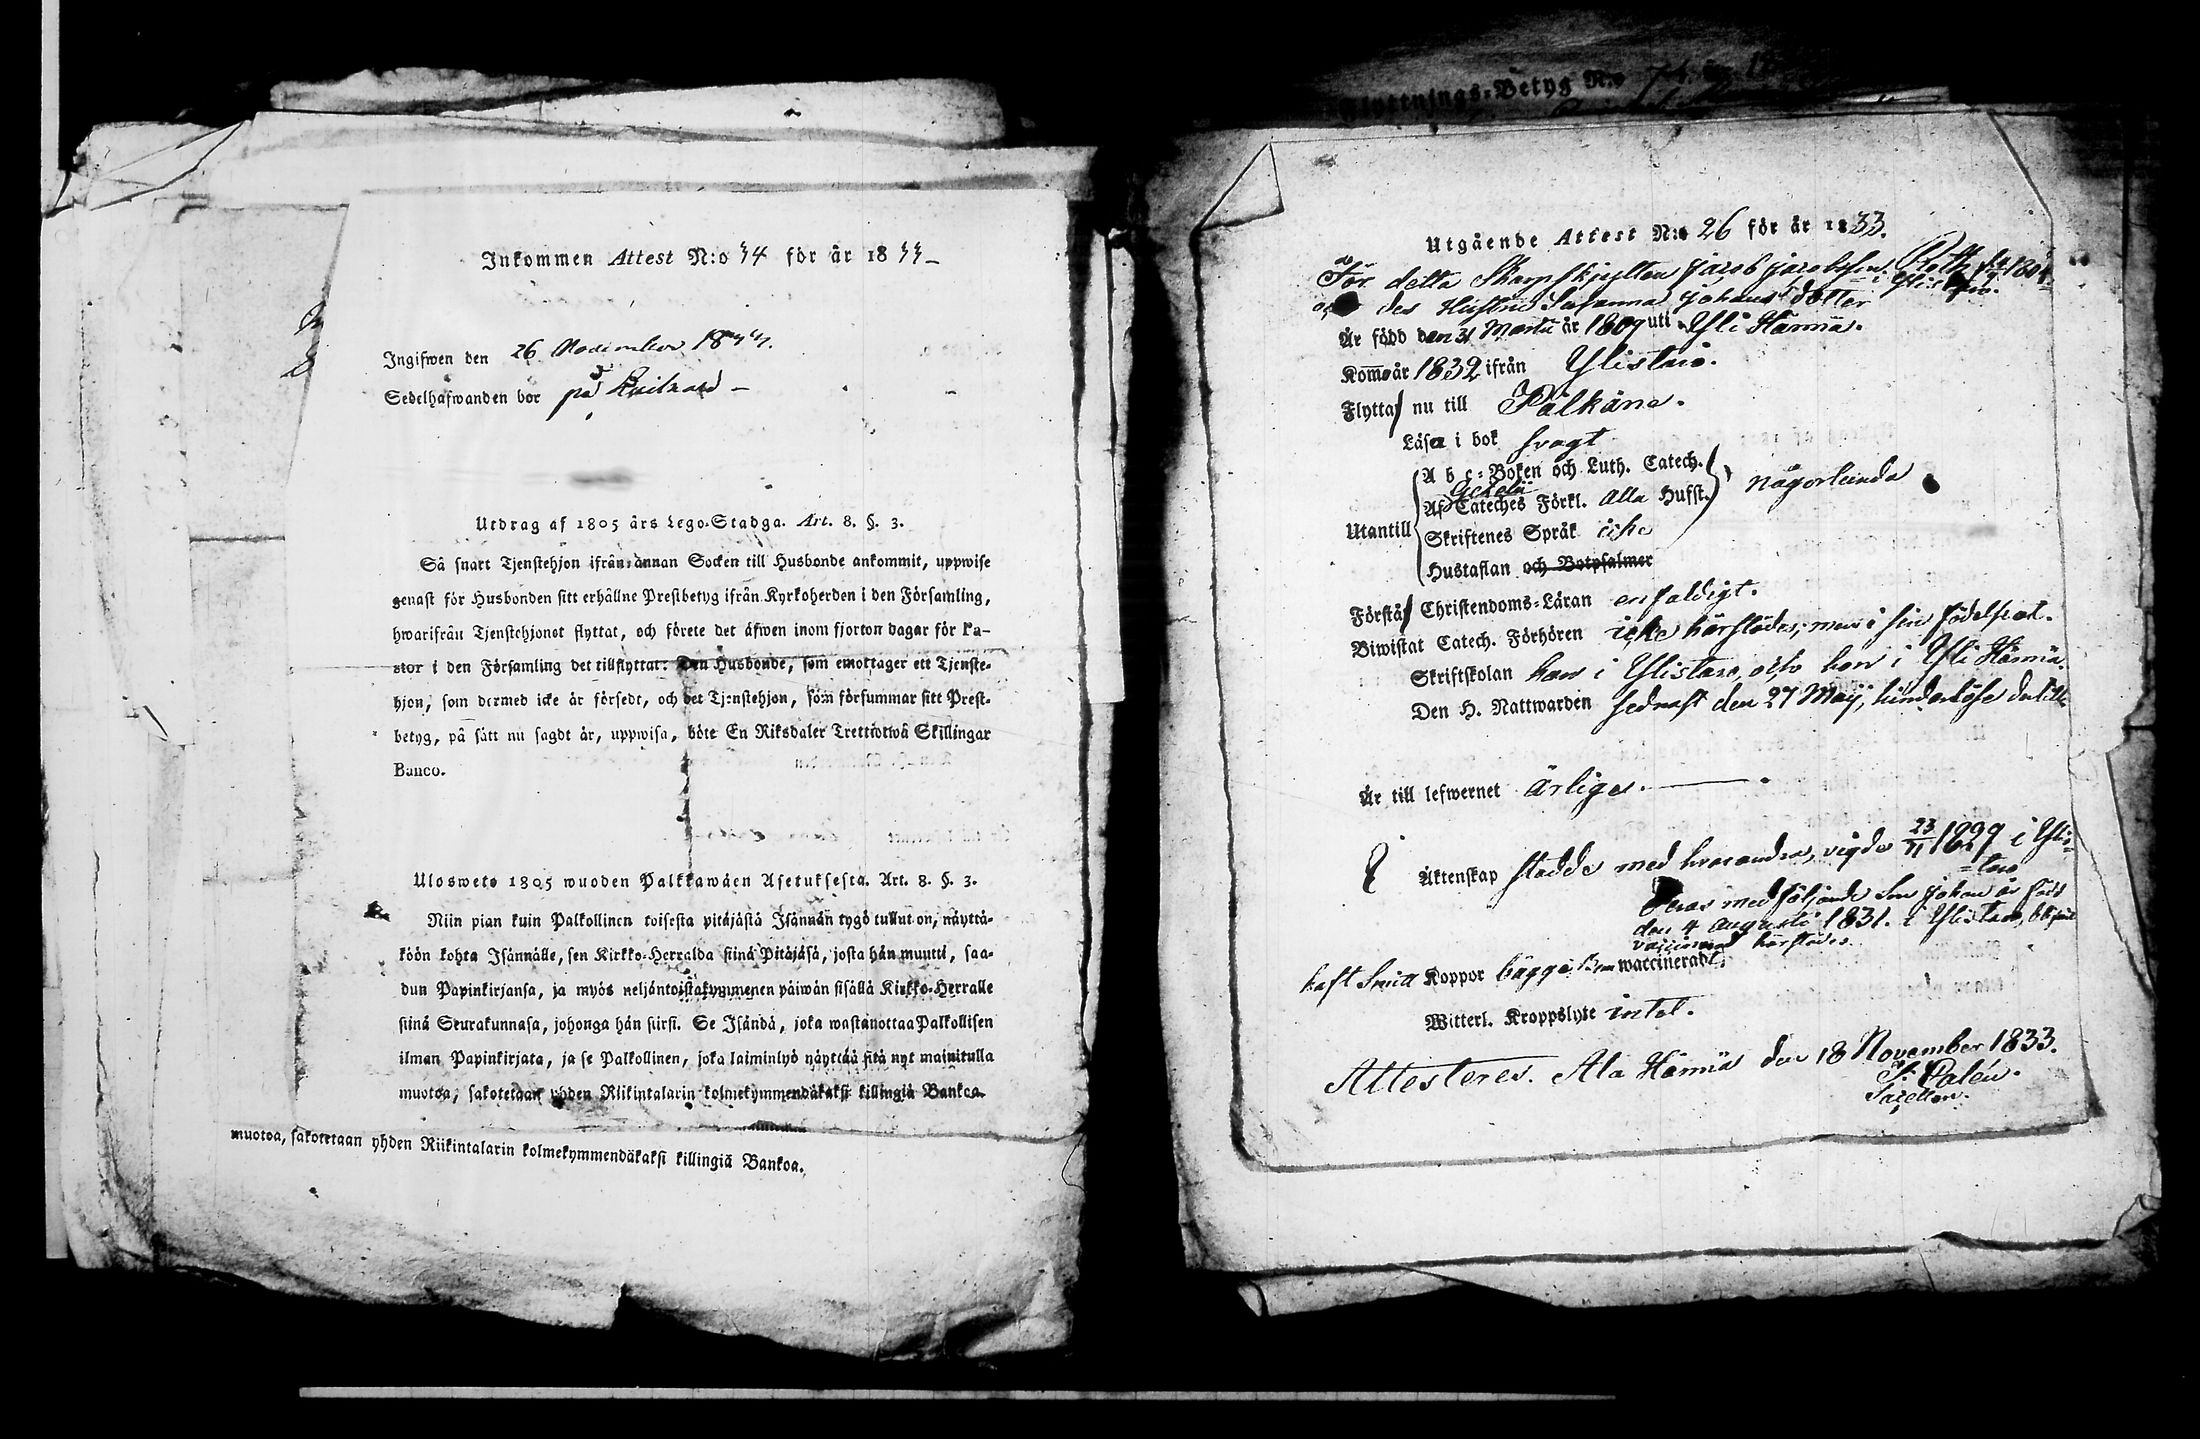 Inkommen Attest N:o 34 för år 1833
Ingifwen den 26 November 1833.
Sedelhafwanden bor på
Utdrag af 1805 års Lego-Stadga. Art. 8. §. 3.
Så snart Tjenstehjon ifrån annan Socken till Husbonde ankommit, uppwise
genast för Husbonden sitt erhållne Prestbetyg ifrån Kyrkoherden i den Församling,
hwarifrån Tjenstehjonet flyttat, och förete det äfwen inom fjorton dagar för Pa-
stor i den Församling det tillflyttat: Den Husbonde, som emottager ett Tjenste-
hjon, som dermed icke är försedt, och det Tjenstehjon, som försummar sitt Prest-
betyg, på sätt nu sagdt är, uppwisa, böte En Riksdaler Trettiotwå Skillingar
Banco.
Uloswete 1805 wuoden Palkkawäen Asetuksesta. Art. 8. §. 3.
Niin pian kuin Palkollinen toisesta pitäjästä Isännän tygö tullut on, näyttä-
köön kohta Isännälle, sen Kirkko-Herralda siinä Pitäjäsä, josta hän muutti, saa-
dun Papinkirjansa, ja myös neljäntoistakymmenen päiwän sisällä Kirkko-Herralle
siinä Seurakunnasa, johonga hän siirsi. Se Isändä, joka wastanottaa Palkollisen
ilman Papinkirjata, ja se Palkollinen, joka laiminlyö näyttää sitä nyt mainitulla
muotoa, sakotetaan yhden Riikintalarin kolmekymmendäkaksi killingiä Bankoa.
muotoa, sakotetaan yhden Riikintalarin kolmekymmendäkaksi killingiä Bankoa.
Flyttnings-Betyg N:o
Utgående Attest N:o 26 för år 1833.
För detta Skarpskytten Jacob Jacobsson
och des Hustru Susanna Johans dotter
Är född den 31 Martii år 1809 uti Yli Härmä.
Kommo år 1832 ifrån Ylistaro.
Flytta nu till Pälkäne.
Läsa i bok svagt
A b c-Boken och Luth. Catech.
Af Cateches Förkl. alla Hufst. någorlunda
Utantill Skriftenes Språk icke
Hustaflan och Botpsalmer
Förstå Christendoms-Läran enfaldigt.
Biwistat Catech. Förhören icke härstädes, men i sin födelseort.
Skriftskolan han i Ylistaro, och hon i Yli Härmä.
Den H. Nattwarden sednast den 27 Maij, hinderlöse dertill
Är till lefwernet ärliga.
Äktenskap stadde med hvarandra, vigde 23/11 1829 i Ylis-
taro
Deras medföljande Son Johan är född
den 4 Augusti 1831. i Ylistaro,
vaccinerad härstädes.
haft Smitt Koppor bägge waccinerad
Witterl. Kroppslyte intet.
Attesteres. Ala Härmä den 18 November 1833.
Palén.
Sacellan.